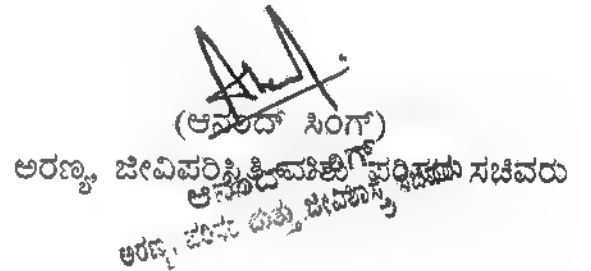 (ಆನಂದ್ ಸಿಂಗ್)
ಅರಣ್ಯ, ಜೀವಿಪರಿಸ್ಥಿತಿ ಮತ್ತು ಪರಿಸರ ಸಚಿವರು
ಆನಂದ್ ಸಿಂಗ್
ಅರಣ್ಯ, ಪರಿಸರ ಮತ್ತು ಜೀವಿಶಾಸ್ತ್ರ